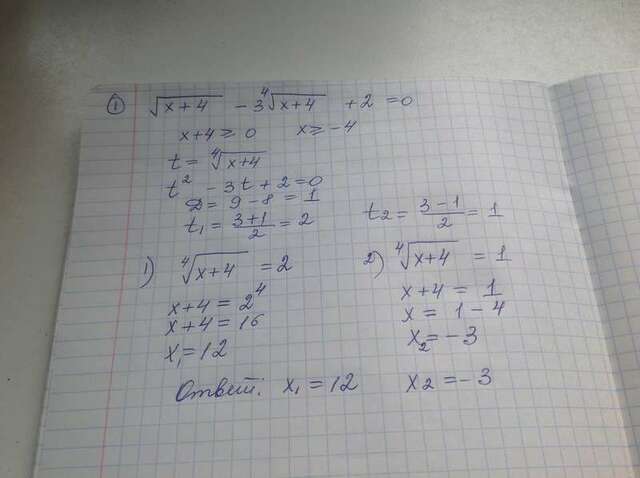 ① √x+4 - 3 ⁴√x+4 + 2 = 0
x+4 ≥ 0 x ≥ -4
t = ⁴√x+4
t² - 3t + 2 = 0
D = 9 - 8 = 1
t₁ = (3+1)/2 = 2 t₂ = (3-1)/2 = 1
1) ⁴√x+4 = 2 2) ⁴√x+4 = 1
x+4 = 2⁴ x+4 = 1
x+4 = 16 x = 1 - 4
x₁ = 12 x₂ = -3
Ответ: x₁ = 12 x₂ = -3